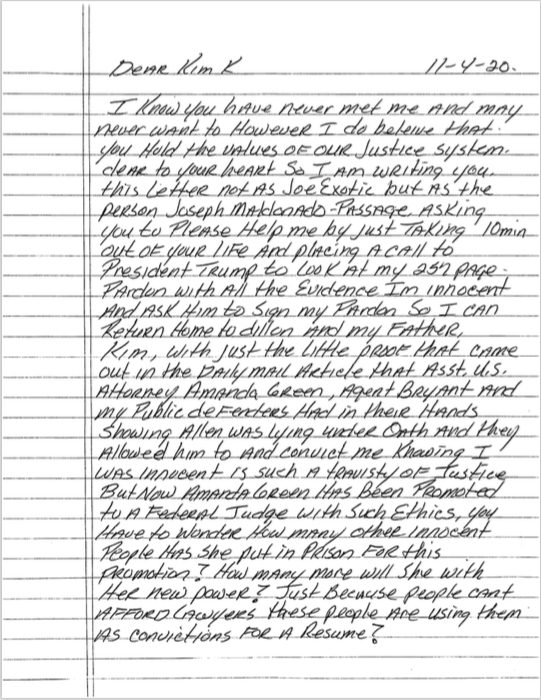 Dear Kim K 11-4-20.
I Know you have never met me and may
never want to However I do beleive that.
you Hold the values of our Justice System.
dear to your heart So I am writing you.
this Letter not as Joe Exotic but as the
person Joseph Maldonado-Passage, Asking
you to Please Help me by just Taking 10min
out of your life and placing a call to
President Trump to look at my 257 page.
Pardon with all the Evidence Im innocent
and ask Him to Sign my Pardon So I can
Return Home to dillon and my Father,
Kim, with just the little proof that came
out in the Daily mail Article that Asst. U.S.
Attorney Amanda Green, Agent Bryant and
my Public defenders Had in their Hands
Showing Allen was lying under Oath and they
Allowed him to and convict me Knowing I
was innocent is such a travisty of Justice
But Now Amanda Green Has Been Promoted
to a Federal Judge with Such Ethics, you
Have to Wonder How many other innocent
People Has She put in Prison For this
promotion? How many more will She with
Her new power? Just Because people cant
afford Lawyers these people are using them
as convictions For a Resume?